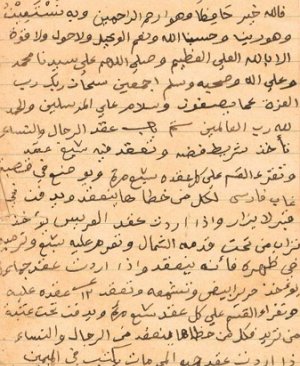 فالله خير حافظا وهو ارحم الراحمين وبه نستعين
وهو ربي وحسبنا الله ونعم الوكيل ولا حول ولا قوة
الا بالله العلي العظيم وصلى الله على سيدنا محمد
وعلى اله وصحبه وسلم اجمعين سبحان ربك رب
العزة عما يصفون وسلام على المرسلين والحمد
لله رب العالمين تم باب عقد الرجال والنساء
تأخذ شريط فضه وتعقد فيه سبع عقد
وتقرء القسم على كل عقده سبع مره ويوضع في قصبة
غاب فارسي لكل من خطا بها ينعقد ويدفن في
قبر لا يزار واذا اردت عقد العريس تؤخذ
تراب من تحت قدمه الشمال وتقرء عليه سبع وترميه
في ظهره فانه ينعقد واذا اردت عقد جماعه
تؤخذ حرير ابيض وتعقد ١٢ عقده عليه
وتقراء القسم على كل عقد سبع مره ويدفن تحت عتبة
من تريد فكل من خطاها ينعقد من الرجال والنساء
واذا اردت عقد